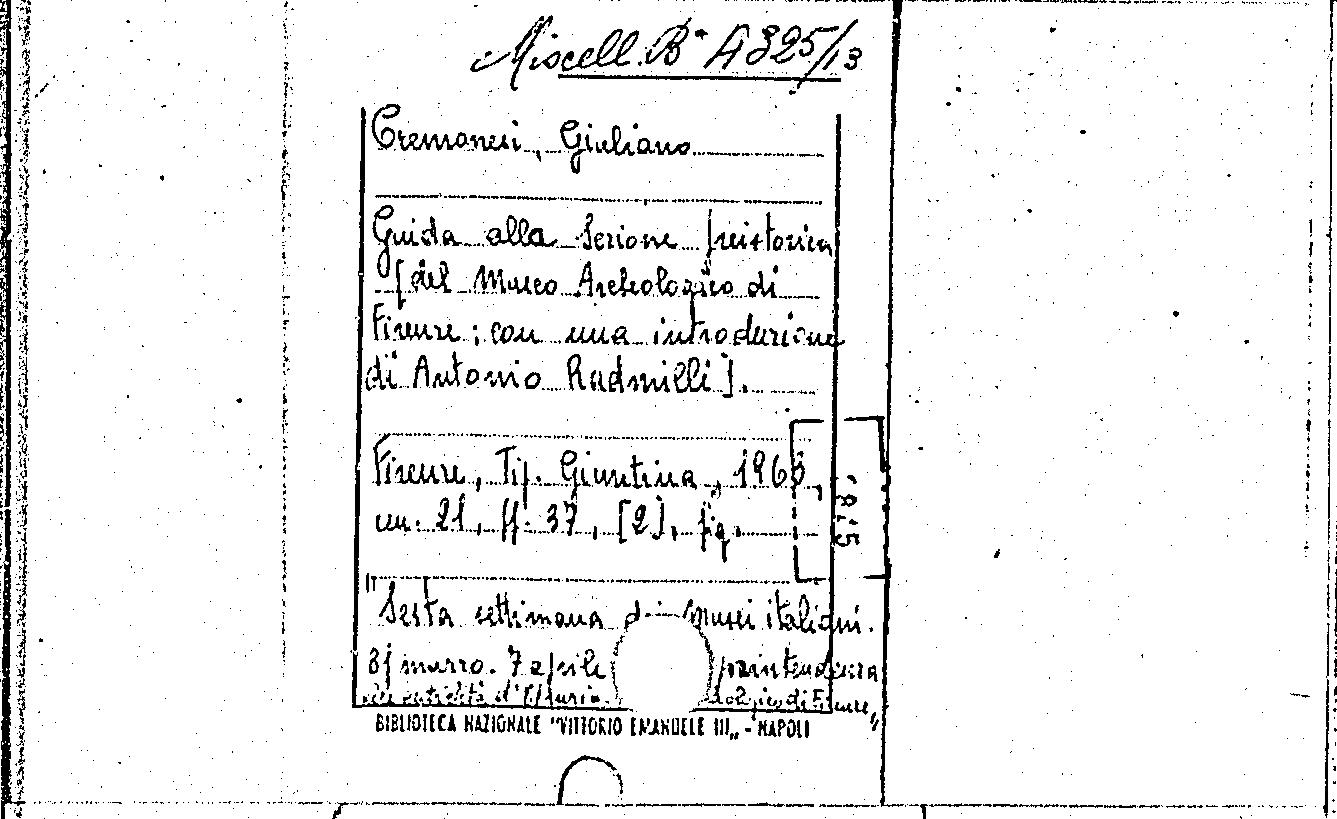 Miscell. Bª A 325/13
Cremonesi, Giuliano
Guida alla Sezione preistorica
[del Museo Archeologico di
Firenze; con una introduzione
di Antonio Radmilli].
Firenze, Tip. Giuntina, 1963,
cm. 21, pp. 37, [2], fig.
"Sesta settimana di Musei italiani.
31 marzo. 7 aprile printendenza
antichità d'Etruria. di Firenze„
BIBLIOTECA NAZIONALE "VITTORIO EMANUELE III„ - NAPOLI